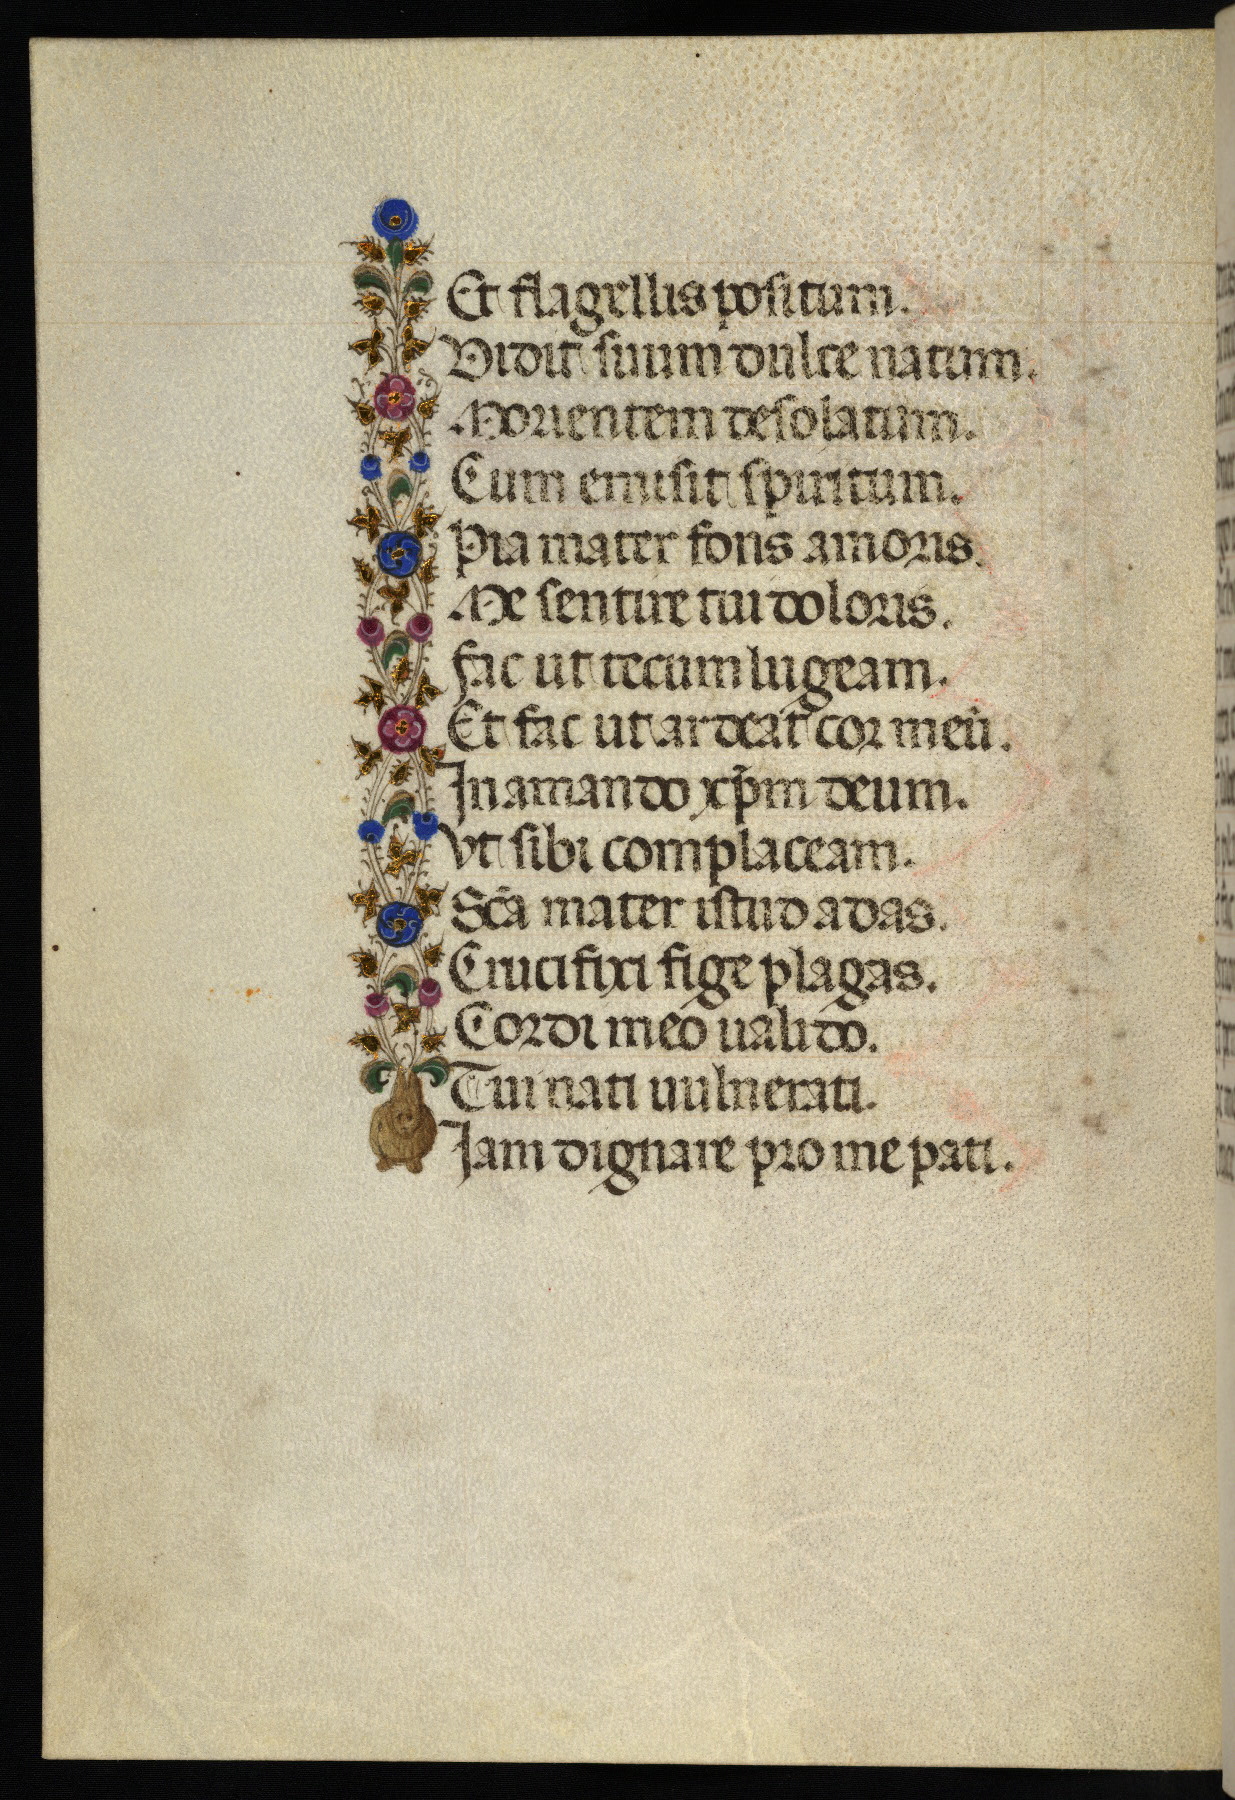 Et flagellis positum.
Vidit suum dulce natum.
Morientem desolatum.
Cum emisit spiritum.
Pia mater fons amoris.
Me sentire tui doloris.
fac ut tecum lugeam.
Et fac ut ardeat cor meū.
In amando xp̄m deum.
Vt sibi complaceam.
Sc̄a mater istud adas.
Crucifixi fige plagas.
Cordi meo ualido.
Tui nati uulnerati.
Jam dignare pro me pati.